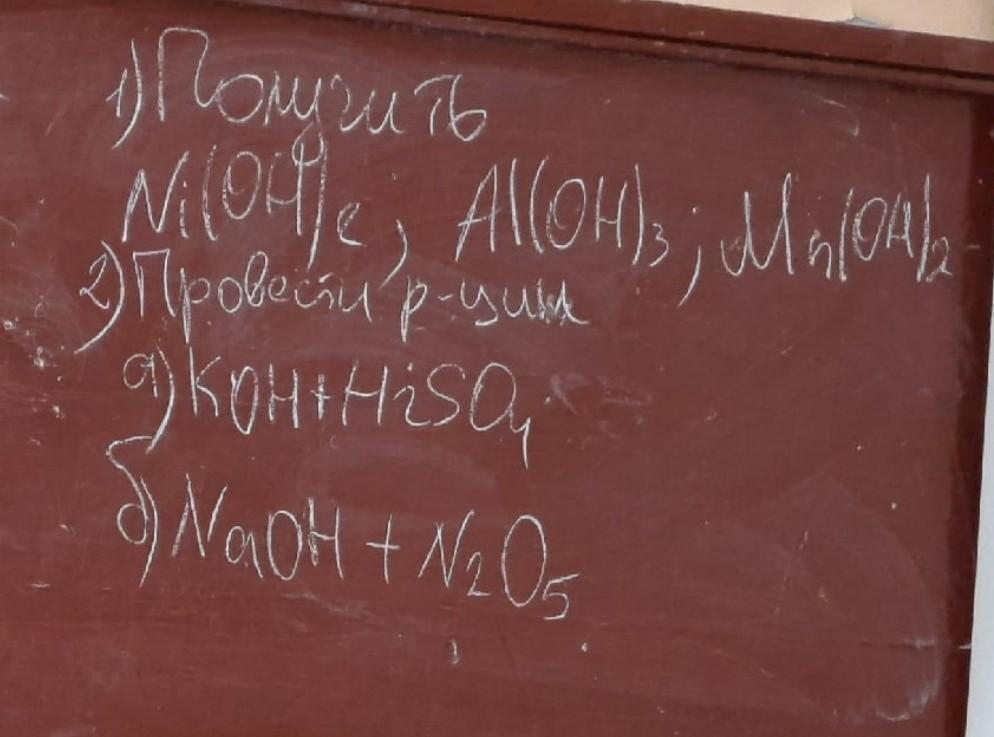 1) Получить
Ni(OH)2, Al(OH)3; Mn(OH)2
2) Провести р-ции
а) KOH+H2SO4
б) NaOH + N2O5